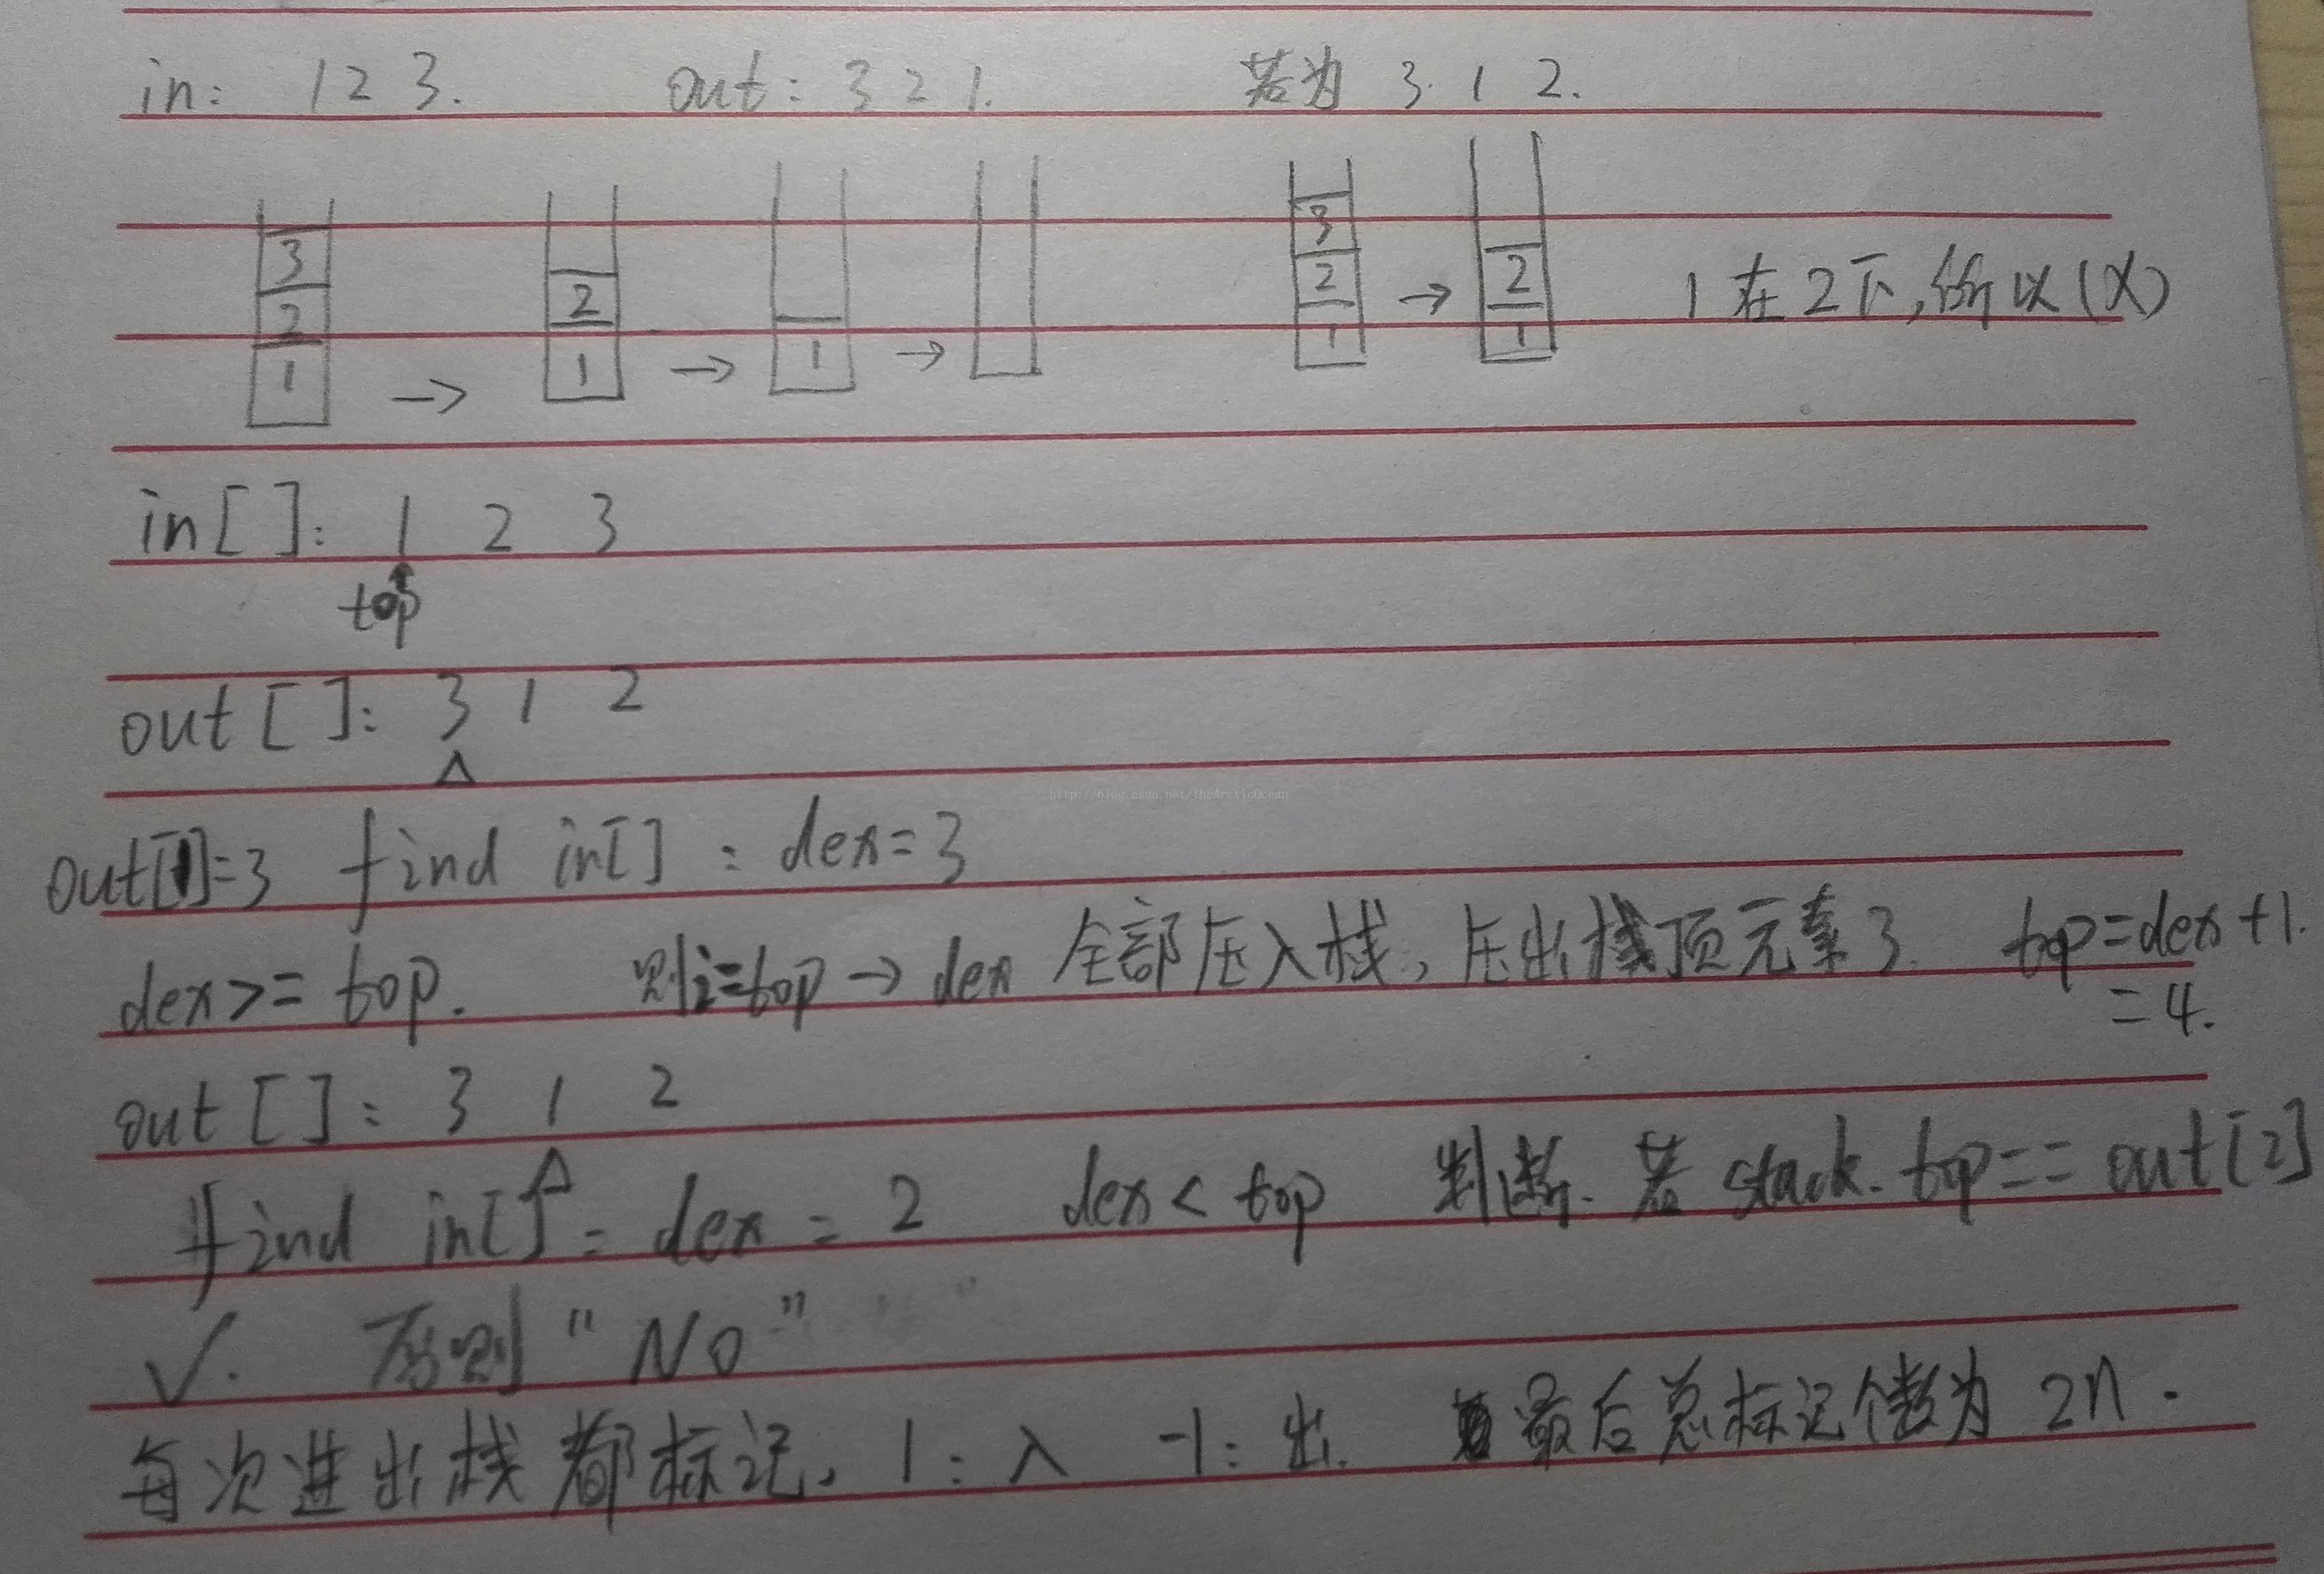 in: 1 2 3. out: 3 2 1. 若为 3. 1 2.
3 2 3
2 1 2 1 → 2
1 → → 1 → 1 1
1在2下,所以(X)
in[ ]: 1 2 3
top
out[ ]: 3 1 2
http://blog.csdn.net/theArcticOcean
out[1]=3 find in[] : dex=3
dex>= top. 则i=top → dex 全部压入栈, 压出栈顶元素3. top=dex+1.
=4.
out[ ]: 3 1 2
find in[] = dex = 2 dex< top 判断. 若 stack.top== out[2]
√. 否则 "NO"
每次进出栈都标记. 1: 入 -1: 出. 最后总标记个数为 2n.